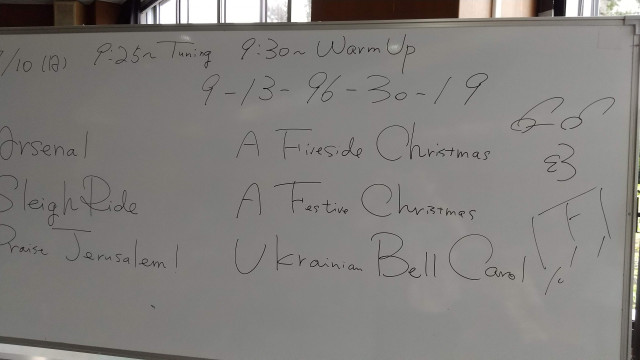 /10 (日) 9:25~ Tuning 9:30~ Warm Up
9-13-96-30-19
Arsenal A Fireside Christmas
Sleigh Ride A Festive Christmas
Praise Jerusalem! Ukrainian Bell Carol